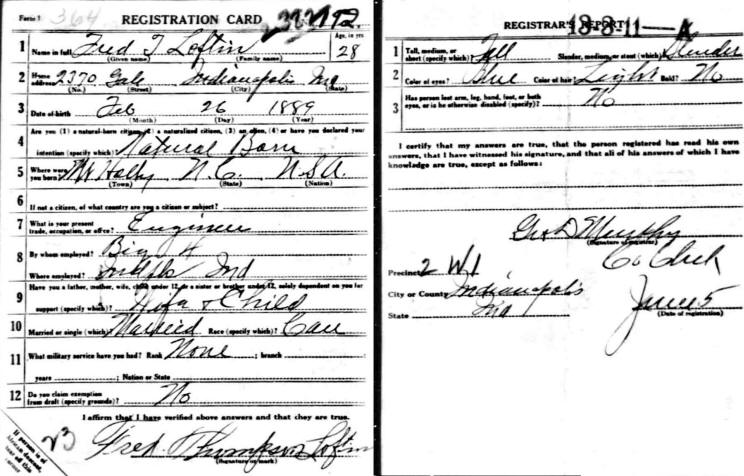 Form 1 364 REGISTRATION CARD No. 92
1 Name in full Fred T Loftin Age, in yrs. 28
(Given name) (Family name)
2 Home address 2370 Gale Indianapolis Ind
(No.) (Street) (City) (State)
3 Date of birth Feb 26 1889
(Month) (Day) (Year)
4 Are you (1) a natural-born citizen, (2) a naturalized citizen, (3) an alien, (4) or have you declared your
intention (specify which)? Natural Born
5 Where were you born? Mt Holly N.C. USA.
(Town) (State) (Nation)
6 If not a citizen, of what country are you a citizen or subject?
7 What is your present trade, occupation, or office? Engineer
8 By whom employed? Big 4
Where employed? Indpls Ind
9 Have you a father, mother, wife, child under 12, or a sister or brother under 12, solely dependent on you for
support (specify which)? Wife & Child
10 Married or single (which)? Married Race (specify which)? Cau
11 What military service have you had? Rank None ; branch
years ; Nation or State
12 Do you claim exemption from draft (specify grounds)? No
I affirm that I have verified above answers and that they are true.
Fred Thompson Loftin
(Signature or mark)
23
If person is of
African descent,
tear off this
corner
REGISTRAR'S REPORT 13-3-11-A
1 Tall, medium, or short (specify which)? Tall Slender, medium, or stout (which)? Slender
2 Color of eyes? Blue Color of hair? Light Bald? No
3 Has person lost arm, leg, hand, foot, or both
eyes, or is he otherwise disabled (specify)? No
I certify that my answers are true, that the person registered has read his own
answers, that I have witnessed his signature, and that all of his answers of which I have
knowledge are true, except as follows:
Geo D Murthy
(Signature of registrar)
Co Clerk
Precinct 2 W 1
City or County Indianapolis
State Ind
June 5
(Date of registration)